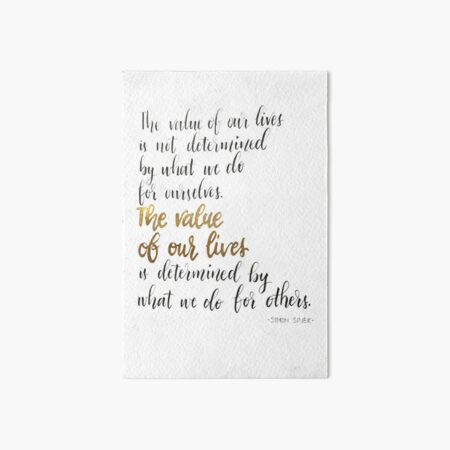 The value of our lives
is not determined
by what we do
for ourselves.
The value
of our lives
is determined by
what we do for others.
-SIMON SINEK-